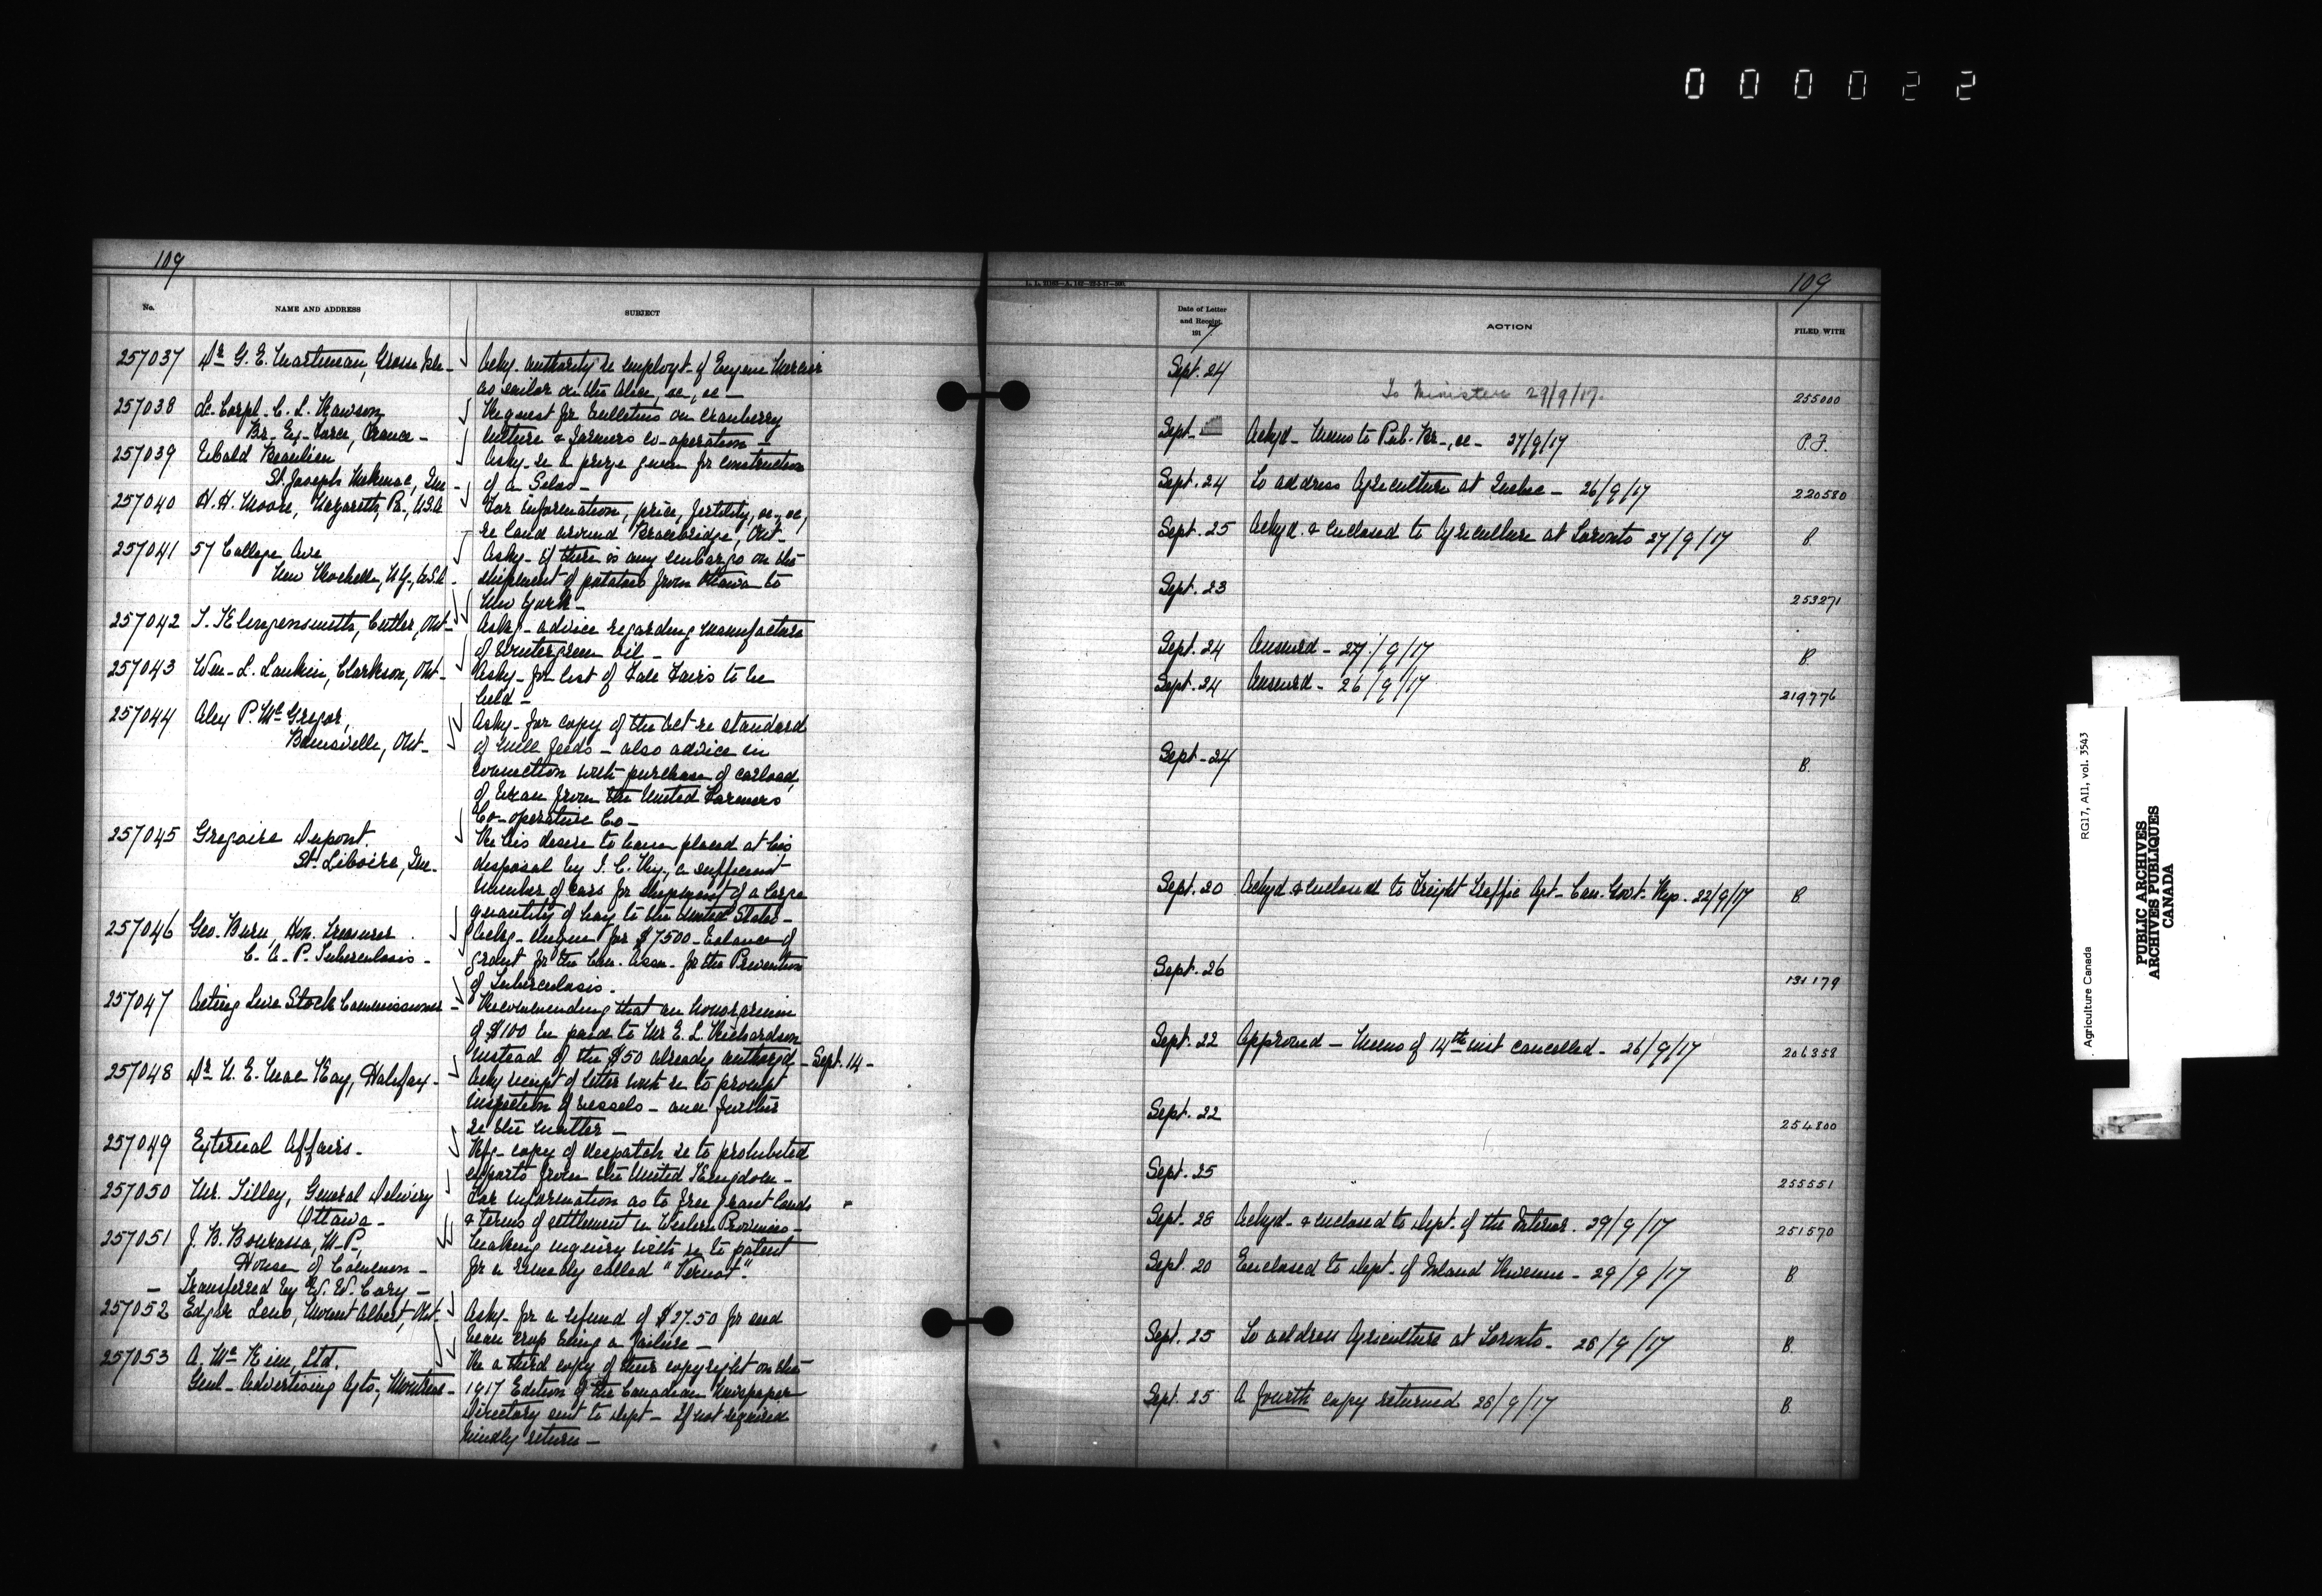 000022
109
No.
NAME AND ADDRESS
SUBJECT
257037 Dr G. E. Martineau, Grosse Isle -
Askg. authority re employt. of Eugene Mercier
as sailor on the Alice, &c, &c -
257038 Lc. Corpl. C. L. Rawson,
Br. Ex. Force, France -
Request for bulletins on Cranberry
Culture & Farmers co-operation -
257039 Ubald Beaulieu
St. Joseph Mekinac, Que -
Askg. re a prize given for construction
of a Silo -
257040 H. H. Moore, Nazareth, Pa., U.S.A
For information, price, fertility, &c, &c,
re land around Bracebridge, Ont -
257041 57 College Ave
New Rochelle, N.Y., U.S.A.
Askg - if there is any embargo on the
shipment of potatoes from Ottawa to
New York -
257042 T. Klingensmith, Cutler, Ont -
Askg - advice regarding manufacture
of Wintergreen Oil -
257043 Wm. L. Lankin, Clarkson, Ont -
Askg - for list of Fall Fairs to be
held -
257044 Alex P. McGregor,
Bainsville, Ont -
Askg - for copy of the Act re standard
of mill feeds - also advice in
connection with purchase of carload
of bran from the United Farmers'
Co-operative Co -
257045 Gregoire Dupont.
St. Liboire, Que.
Re his desire to have placed at his
disposal by I. C. Ry., a sufficient
number of cars for shipment of a large
quantity of hay to the United States -
257046 Geo. Burn, Hon. Treasurer
C. A. P. Tuberculosis -
Ackg - cheque for $7500 - balance of
grant for the Can. Assn. for the Prevention
of Tuberculosis.
257047 Acting Live Stock Commissioner -
Recommending that an honorarium
of $100 be paid to Mr E. L. Richardson
instead of the $50 already authorizd - Sept. 14 -
257048 Dr N. E. MacKay, Halifax -
Ackg receipt of letter with re to prompt
inspection of vessels - and further
re the matter -
257049 External Affairs -
Refg - copy of despatch re to prohibited
exports from the United Kingdom -
257050 Mr. Tilley, General Delivery
Ottawa -
For information as to free grant lands
& terms of settlement in Western Provinces -
257051 J. B. Bourassa, M.P,
House of Common -
- Transferred by W. W. Cory -
Making inquiry with re to patent
for a remedy called "Vernol".
257052 Edgar Leno, Mount Albert, Ont -
Askg - for a refund of $27.50 for seed
bean crop being a failure -
257053 A. McKim, Ltd.
Genl - Advertising Agts, Montreal -
Re a third copy of their copyright on the
1917 Edition of the Canadian Newspaper
Directory sent to Dept - If not required
kindly return -
109
Date of Letter
and Receipt.
1917
ACTION
FILED WITH
Sept. 24 To Minister 29/9/17. 255000
Sept - Ackgd - Memo to Pub. Br -, &c - 27/9/17 P.F.
Sept. 24 To address Agriculture at Quebec - 26/9/17 220580
Sept. 25 Ackgd. & enclosed to Agriculture at Toronto 27/9/17 B.
Sept. 23 253271
Sept. 24 Answrd - 27/9/17 B.
Sept. 24 Answrd - 26/9/17 219776
Sept - 24 B.
Sept. 20 Ackgd & enclosed to Freight Traffic Agt - Can. Govt. Rys. 22/9/17 B
Sept. 26 131179
Sept. 22 Approved - Memo of 14th inst cancelled - 26/9/17 206358
Sept. 22 254800
Sept. 25 255551
Sept. 28 Ackgd - & enclosed to Dept. of the Interior. 29/9/17 251570
Sept. 20 Enclosed to Dept - of Inland Revenue - 29/9/17 B
Sept. 25 To address Agriculture at Toronto - 28/9/17 B.
Sept. 25 A fourth copy returned 28/9/17 B
Agriculture Canada RG17, AII, vol. 3543
PUBLIC ARCHIVES
ARCHIVES PUBLIQUES
CANADA